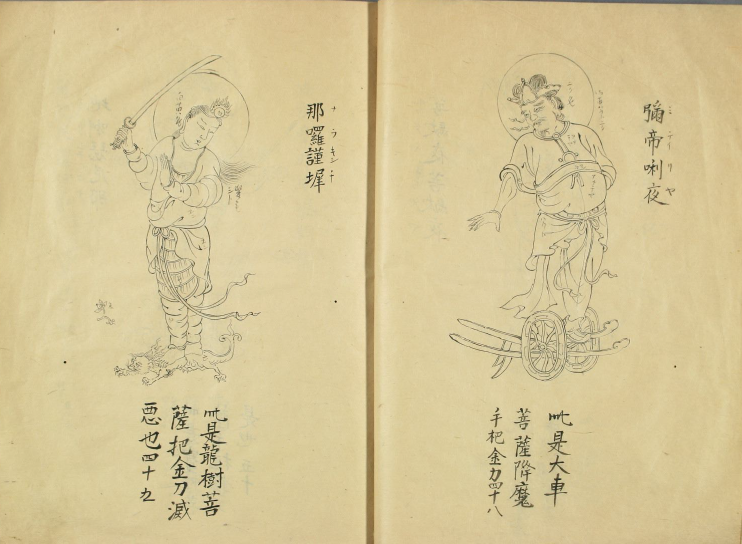 彌帝唎夜
ミテイリヤ
此是大車
菩薩降魔
手把金刀四十八
那囉謹墀
ナラキンチ
此是龍樹菩
薩把金刀滅
悪也四十九